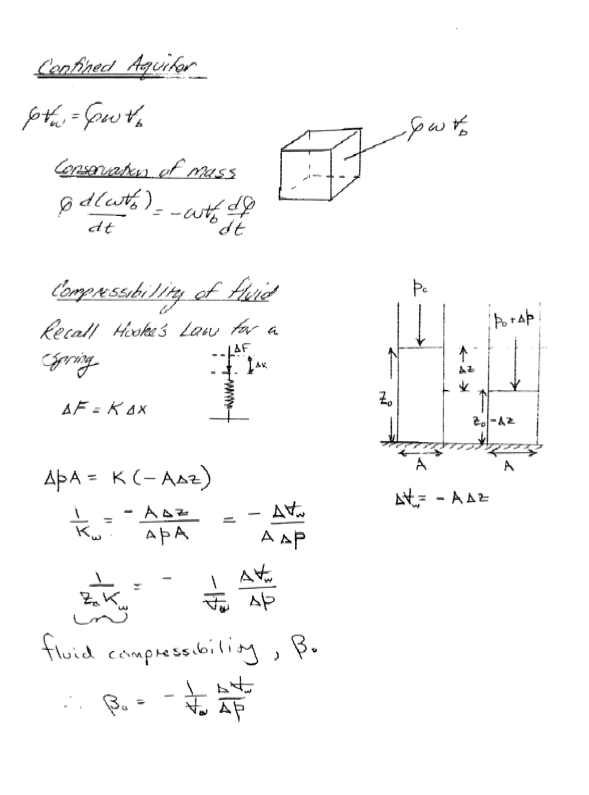 Confined Aquifer
φV̶w = φωV̶b
φωV̶b
Conservation of mass
φ d(ωV̶b)/dt = -ωV̶b dφ/dt
Compressibility of fluid
Recall Hooke's Law for a
Spring
ΔF
Δx
ΔF = K Δx
p₀
p₀ + Δp
Δz
z₀
z₀ - Δz
A
A
ΔV̶w = - AΔz
ΔpA = K (-AΔz)
1/Kw = -AΔz/ΔpA = - ΔV̶w/AΔp
1/z₀Kw = - 1/V̶w ΔV̶w/Δp
fluid compressibility, β₀
∴ β₀ = - 1/V̶w ΔV̶w/Δp